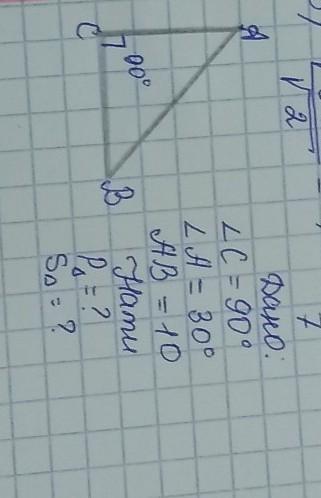 √2
7
A
C
90°
B
Дано:
∠C = 90°
∠A = 30°
AB = 10
Найти
P△ = ?
S△ = ?